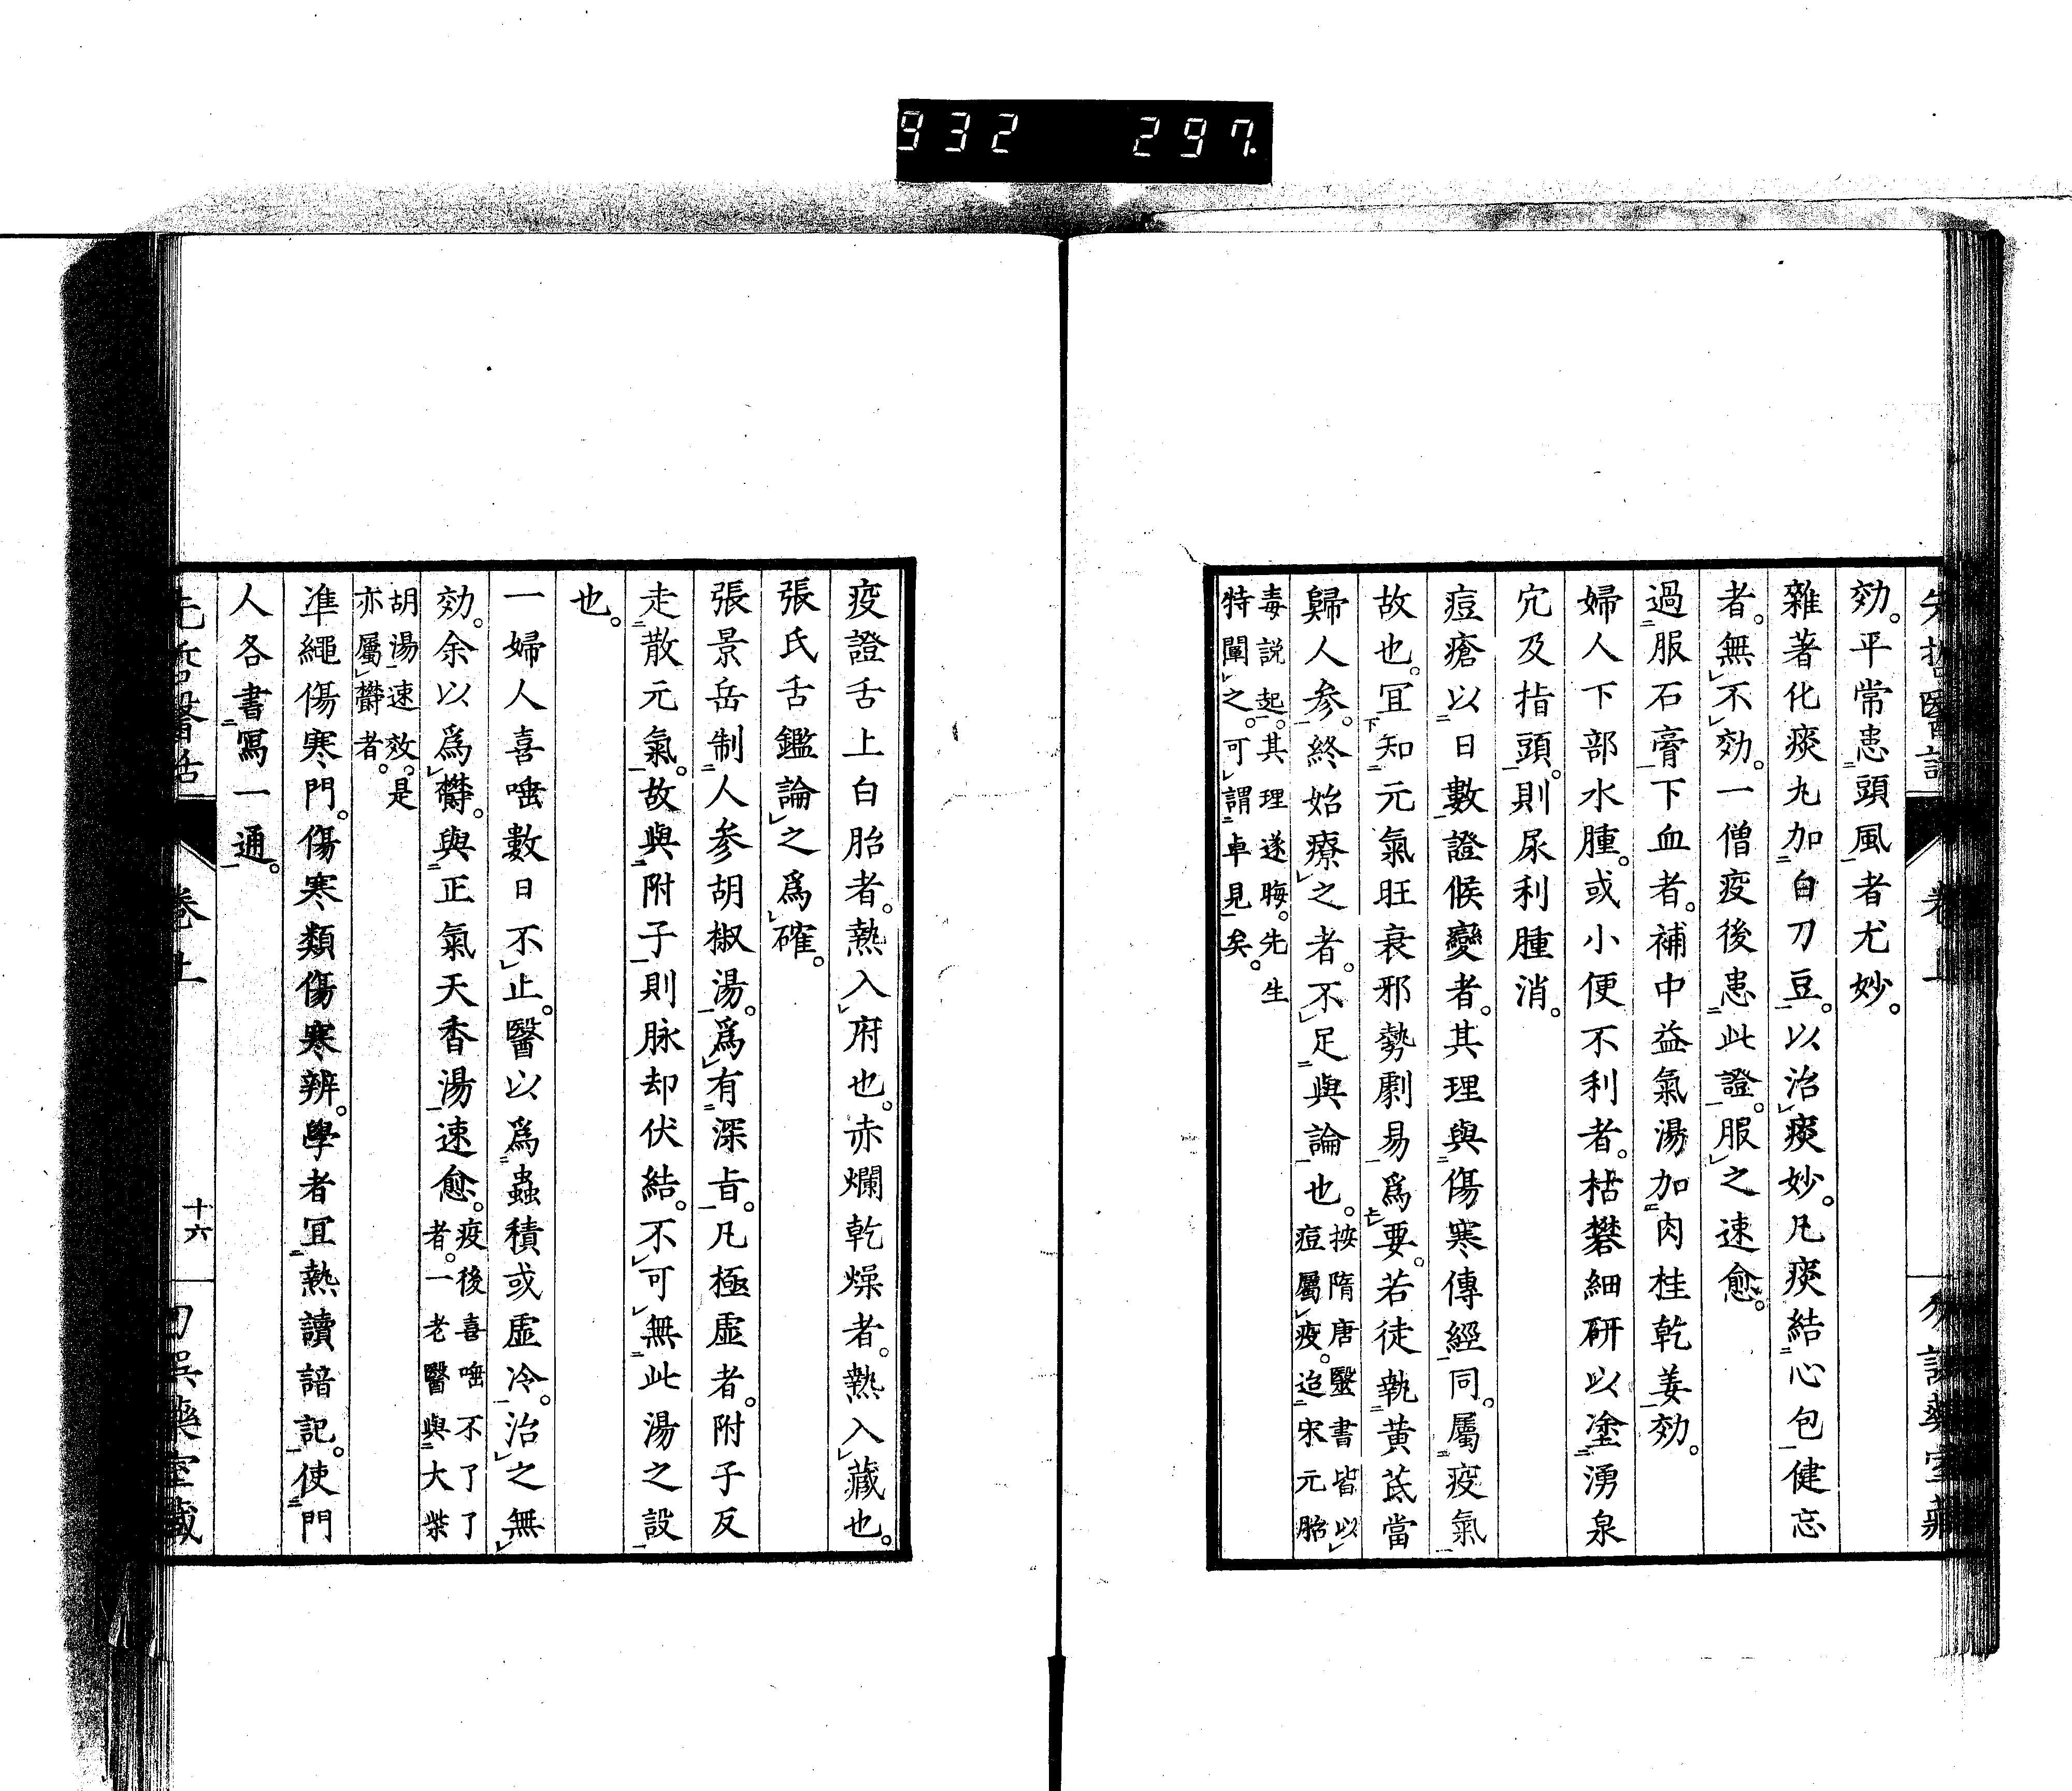 932 297.
効。平常患頭風者尤妙。
雜著化痰丸加白刀豆。以治痰妙。凡痰結心包健忘
者。無不効。一僧疫後患此證。服之速愈。
過服石膏下血者。補中益氣湯加肉桂乾姜効。
婦人下部水腫。或小便不利者。枯礬細研以塗湧泉
穴及指頭。則尿利腫消。
痘瘡以日數證候變者。其理與傷寒傳經同。屬疫氣
故也。宜知元氣旺衰邪勢劇易爲要。若徒執黃芪當
歸人参。終始療之者。不足與論也。按隋唐醫書皆以
痘屬疫。迨宋元胎
毒説起。其理遂晦。先生
特闡之。可謂卓見矣。
疫證舌上白胎者。熱入府也。赤爛乾燥者。熱入藏也。
張氏舌鑑論之爲確。
張景岳制人参胡椒湯。爲有深旨。凡極虛者。附子反
走散元氣。故與附子則脉却伏結。不可無此湯之設
也。
一婦人喜唾數日不止。醫以爲蟲積或虛冷。治之無
効。余以爲鬱。與正氣天香湯速愈。疫後喜唾不了了
者。一老醫與大柴
胡湯速效。是
亦屬鬱者。
準繩傷寒門。傷寒類傷寒辨。學者宜熟讀諳記。使門
人各書寫一通。
先哲醫話
卷上
十六